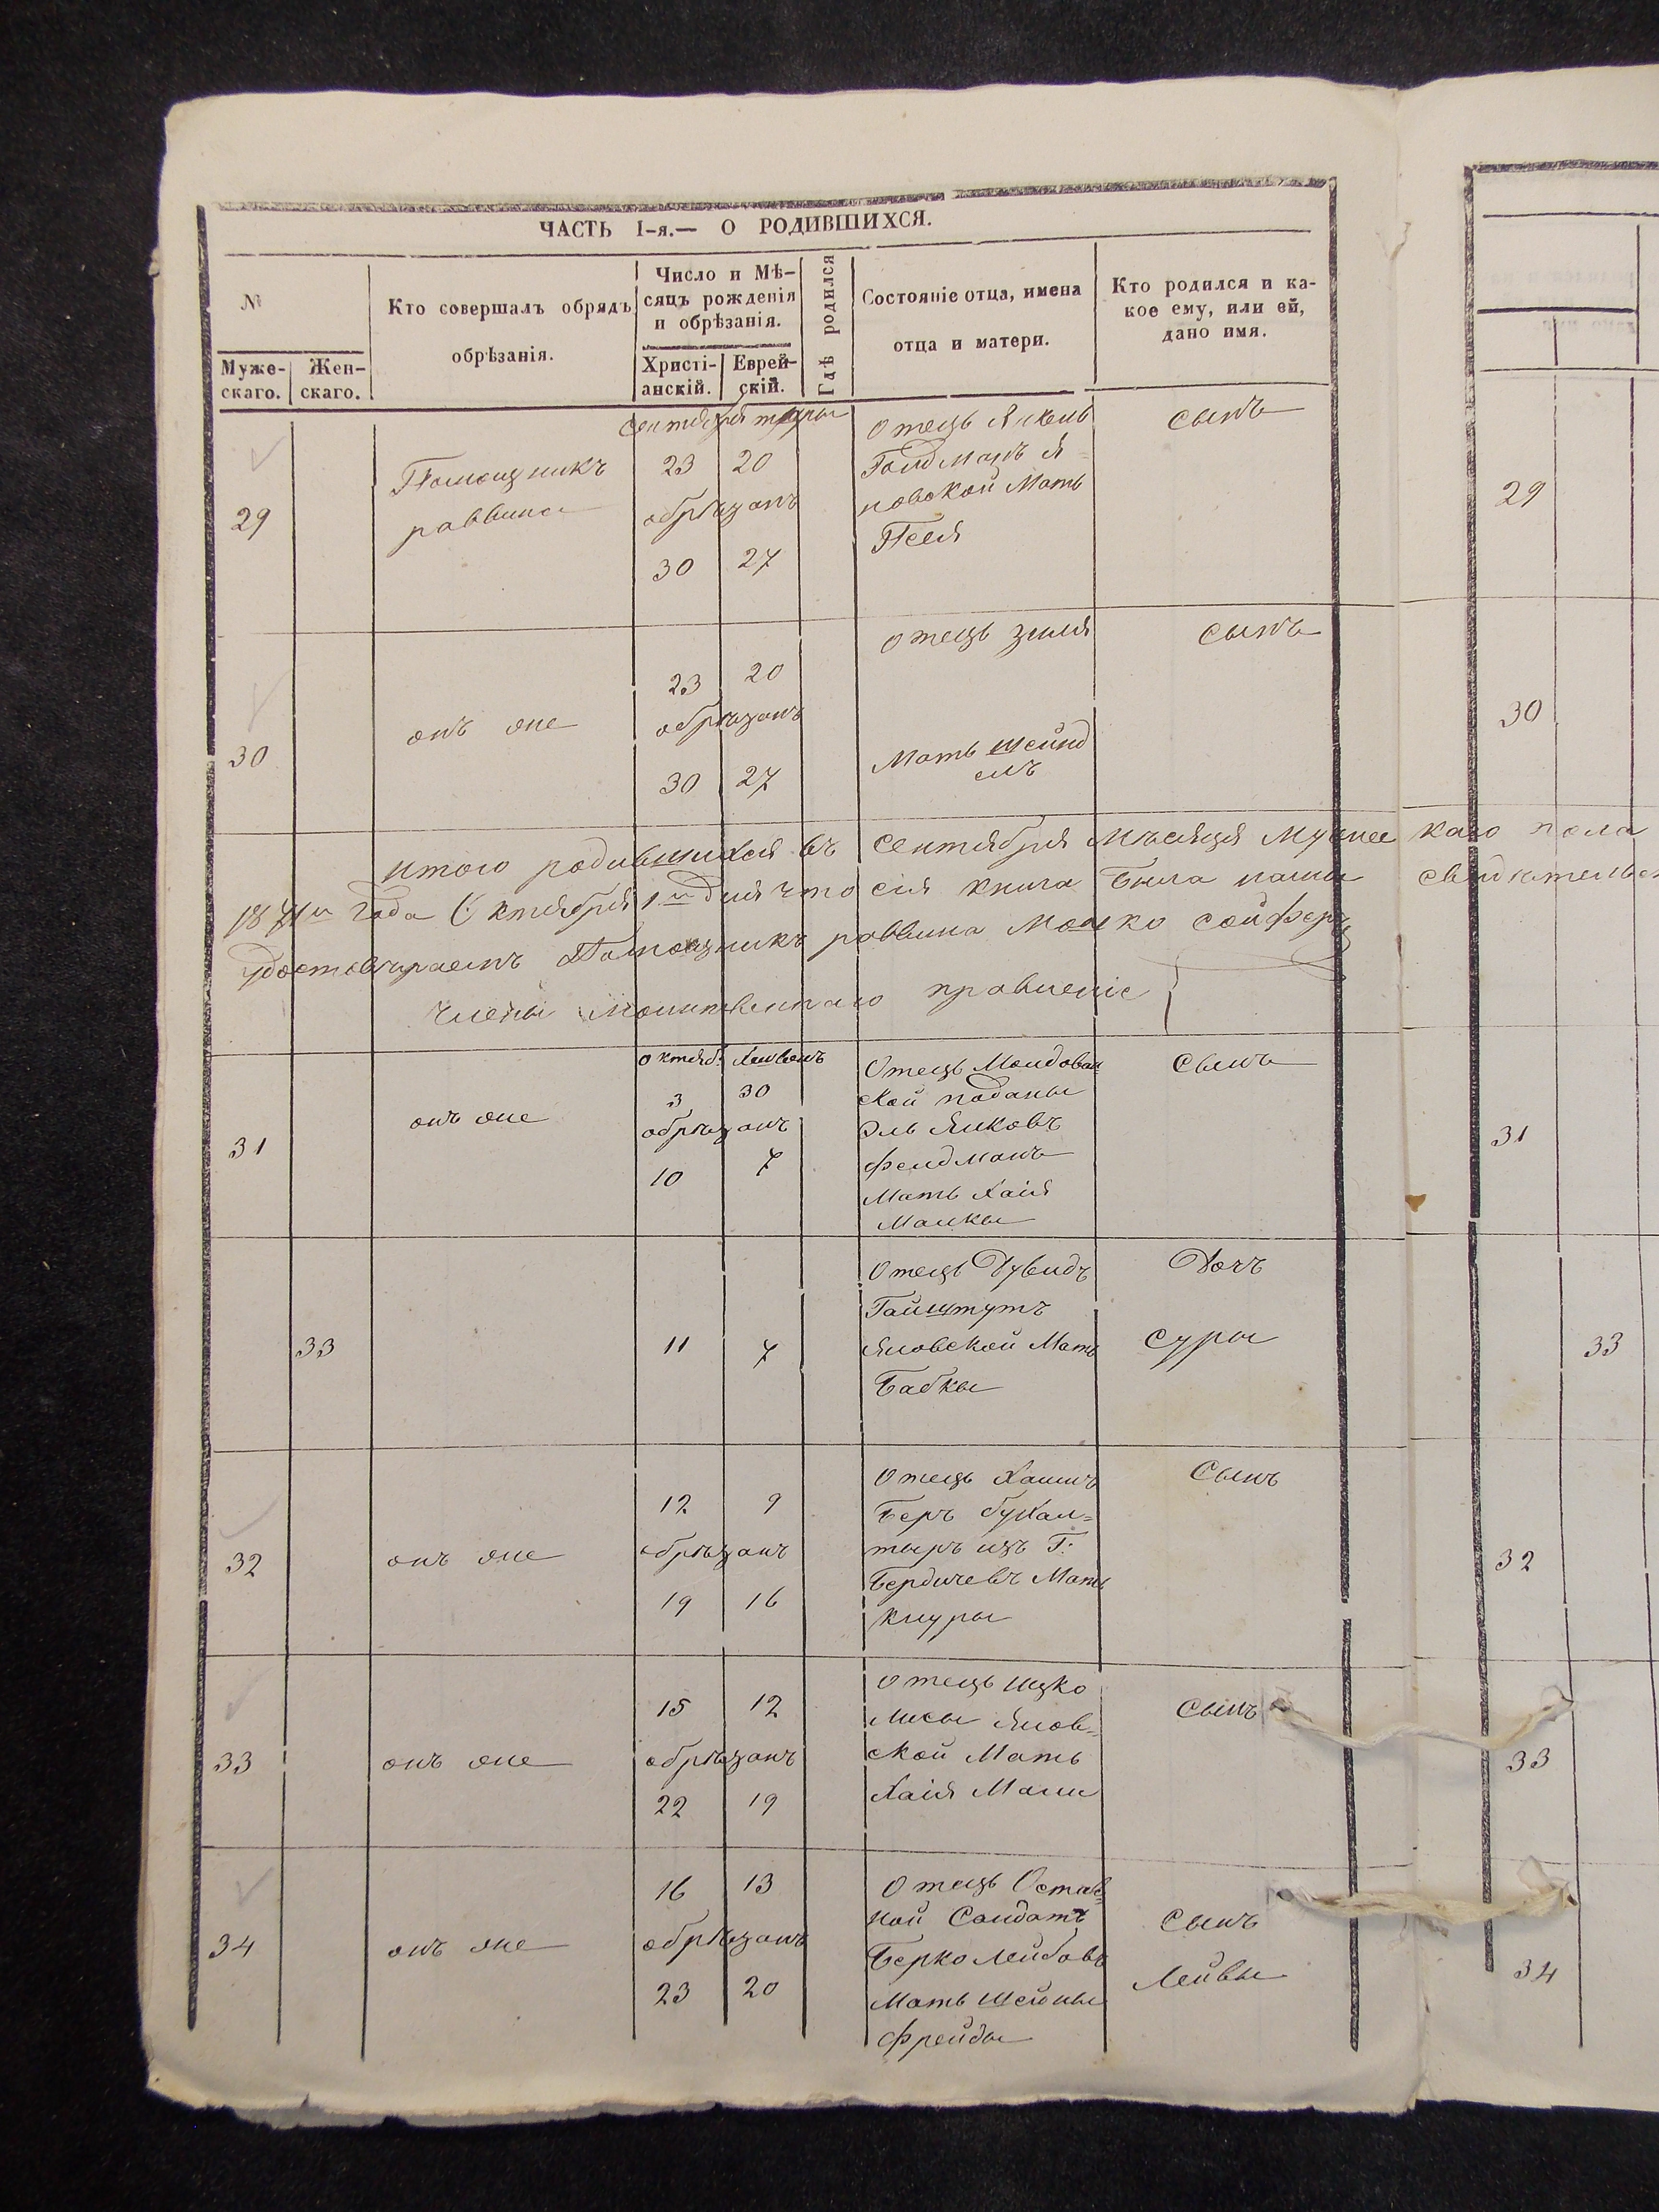 ЧАСТЬ I-я.— О РОДИВШИХСЯ.
№
Муже-
скаго.
Жен-
скаго.
Кто совершалъ обрядъ
обрѣзанія.
Число и Мѣ-
сяцъ рожденія
и обрѣзанія.
Христі-
анскій.
Еврей-
скій.
Гдѣ родился
Состояніе отца, имена
отца и матери.
Кто родился и ка-
кое ему, или ей,
дано имя.
29
Помощникъ
раввина
23 20
обрѣзанъ
30 27
Отецъ Янкель
Голдманъ Я-
новской Мать
Песя
сынъ
29
30
онъ же
23 20
обрѣзанъ
30 27
Отецъ зиля
Мать шейнд
елъ
сынъ
30
итого родившихся въ Сентября Мѣсяця Мужескаго пола
1871го Года Октября 1го дня что сія книга была нами
удостовѣраемъ Помощникъ раввина Мошко сойферъ
члены Молитвеннаго правленіе
31
онъ же
Октяб. Хешвонъ
3 30
обрѣзанъ
10 7
Отецъ Молдован
ской поданы
Эль Янковъ
Фелдманъ
Мать Хаія
Малкы
Сынъ
31
33
11 7
Отецъ Дувидъ
Гайштутъ
Яновской Мать
Бабкы
Дочъ
Суры
33
32
онъ же
12 9
обрѣзанъ
19 16
Отецъ Хаимъ
Беръ бухал=
тыръ изъ Г.
Бердичевъ Мать
Сынъ
32
33
онъ же
15 12
обрѣзанъ
22 19
Отецъ Ицко
Лисы Янов=
ской Мать
Хаія Мали
Сынъ
33
34
онъ же
16 13
обрѣзанъ
23 20
Отецъ Остав
ной Солдатъ
Берко Лейбовъ
Мать Шейны
Фрейды
Сынъ
Лейвы
34